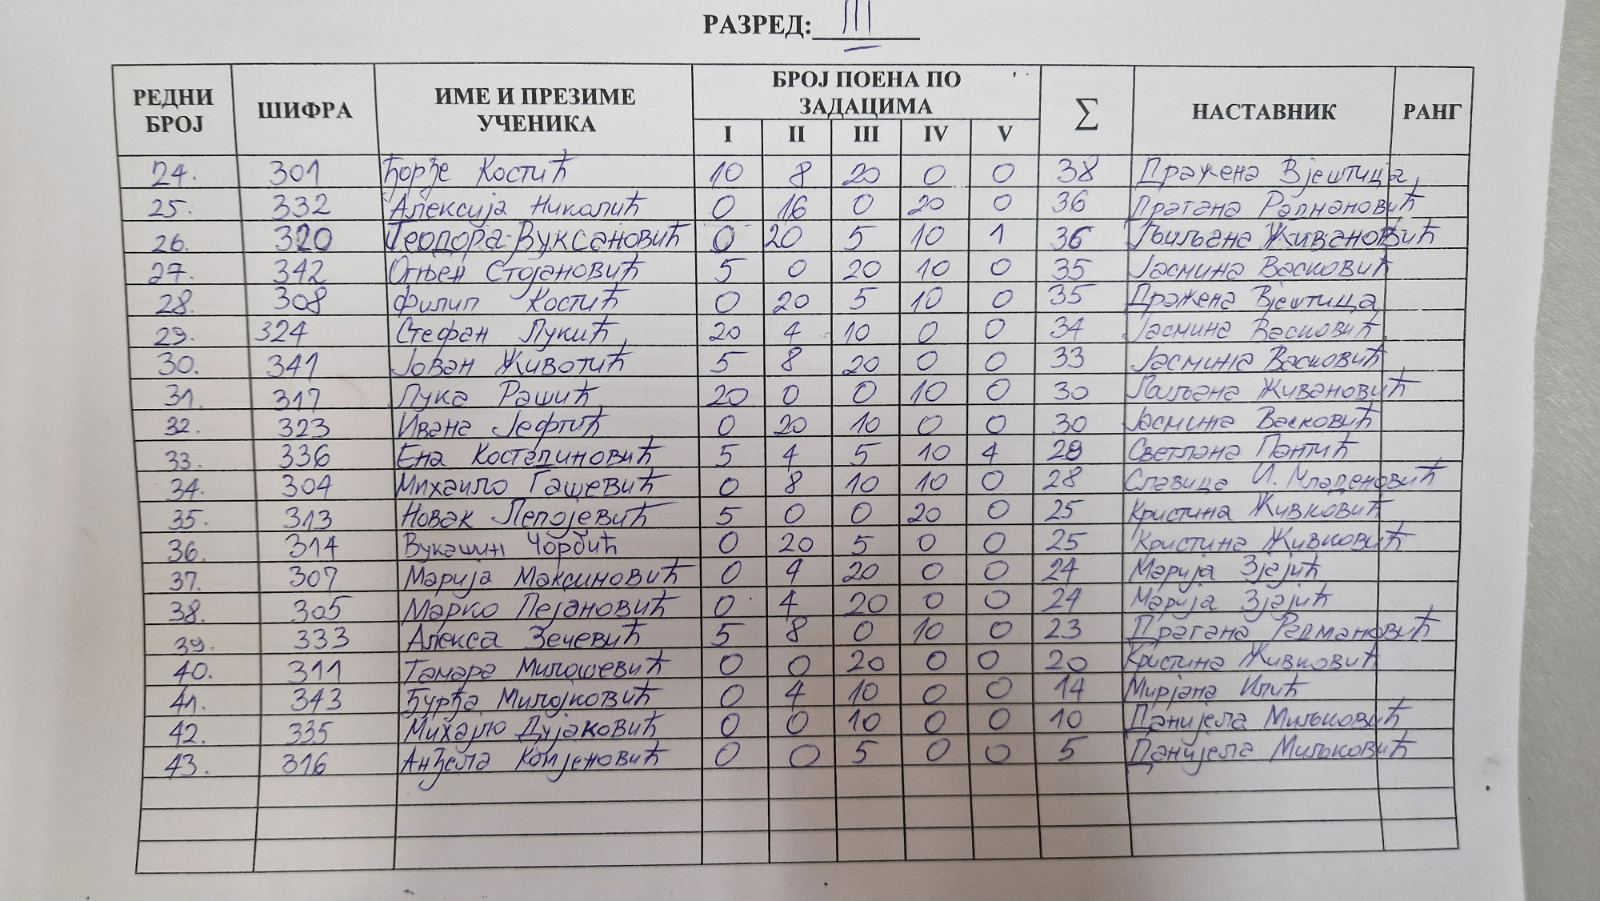 РАЗРЕД: III
РЕДНИ БРОЈ ШИФРА ИМЕ И ПРЕЗИМЕ УЧЕНИКА БРОЈ ПОЕНА ПО ЗАДАЦИМА Σ НАСТАВНИК РАНГ
I II III IV V
24. 301 Ђорђе Костић 10 8 20 0 0 38 Дражена Вјештица
25. 332 Алексија Николић 0 16 0 20 0 36 Драгана Радмановић
26. 320 Теодора Вуксановић 0 20 5 10 1 36 Љиљана Живановић
27. 342 Огњен Стојановић 5 0 20 10 0 35 Јасмина Васковић
28. 308 Филип Костић 0 20 5 10 0 35 Дражена Вјештица
29. 324 Стефан Лукић 20 4 10 0 0 34 Јасмина Васковић
30. 341 Јован Животић 5 8 20 0 0 33 Јасмина Васковић
31. 317 Лука Рашић 20 0 0 10 0 30 Љиљана Живановић
32. 323 Ивана Јефтић 0 20 10 0 0 30 Јасмина Васковић
33. 336 Ена 5 4 5 10 4 28 Светлана Пантић
34. 304 Михаило Гашевић 0 8 10 10 0 28 Славица И. Младеновић
35. 313 Новак Лепојевић 5 0 0 20 0 25 Кристина Живковић
36. 314 Вукашин Чорбић 0 20 5 0 0 25 Кристина Живковић
37. 307 Марија Максимовић 0 4 20 0 0 24 Марија Зјајић
38. 305 Марко Пејановић 0 4 20 0 0 24 Марија Зјајић
39. 333 Алекса Зечевић 5 8 0 10 0 23 Драгана Радмановић
40. 311 Тамара Милошевић 0 0 20 0 0 20 Кристина Живковић
41. 343 Ђурђа Милојковић 0 4 10 0 0 14 Мирјана Илић
42. 335 Михајло Дујаковић 0 0 10 0 0 10 Данијела Миљковић
43. 316 Анђела Комјеновић 0 0 5 0 0 5 Данијела Миљковић